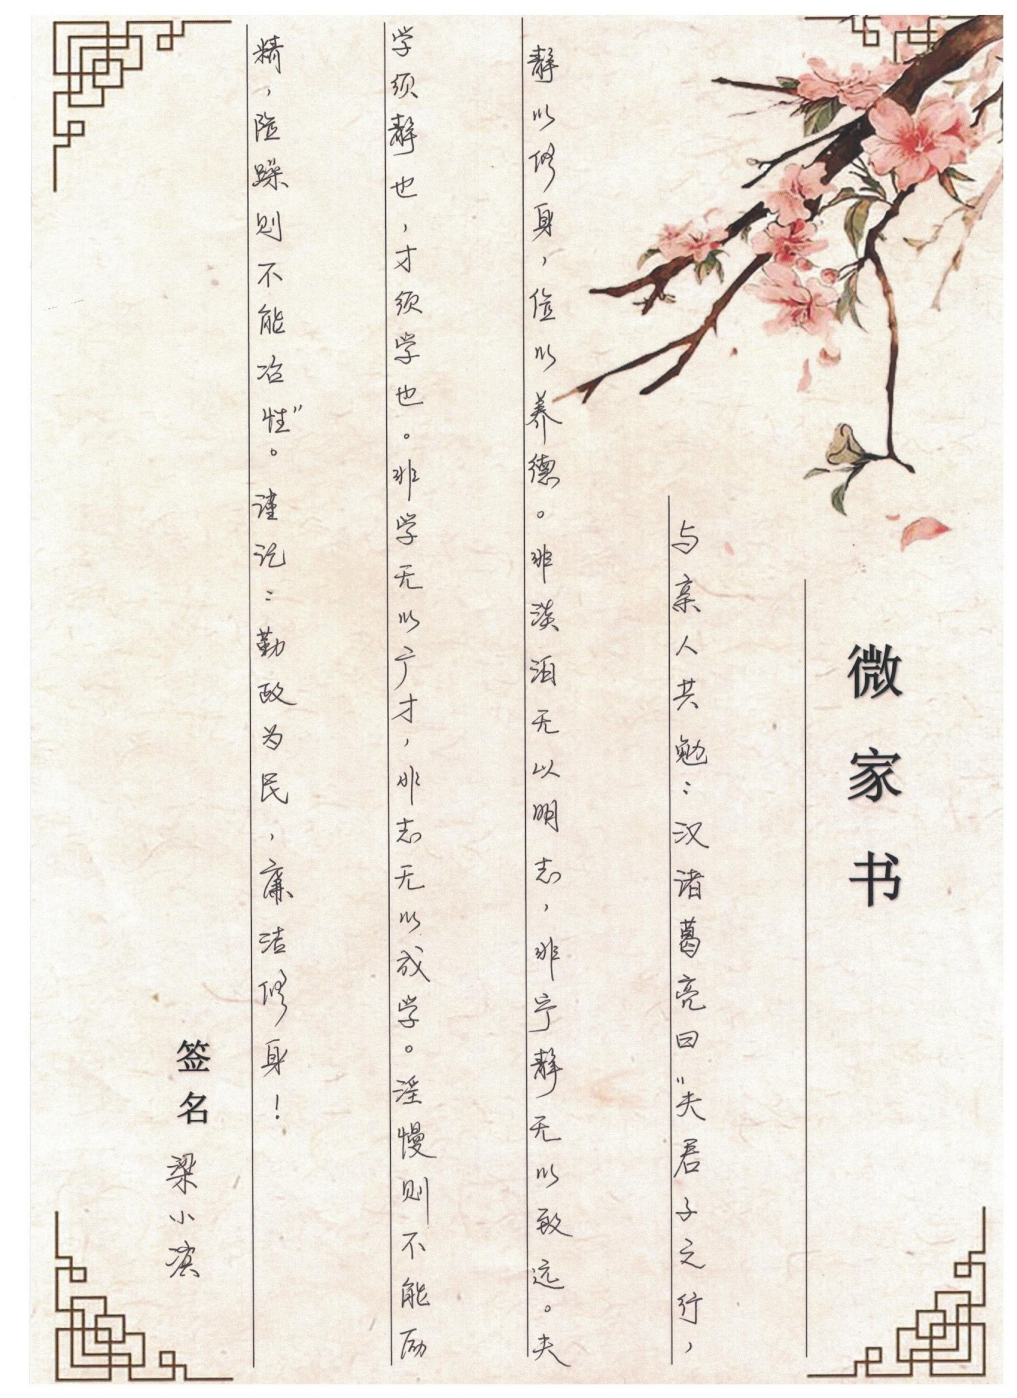 微家书
与亲人共勉：汉诸葛亮曰"夫君子之行，
静以修身，俭以养德。非淡泊无以明志，非宁静无以致远。夫
学须静也，才须学也。非学无以广才，非志无以成学。淫慢则不能励
精，险躁则不能冶性"。谨记：勤政为民，廉洁修身！
签名 梁小滨